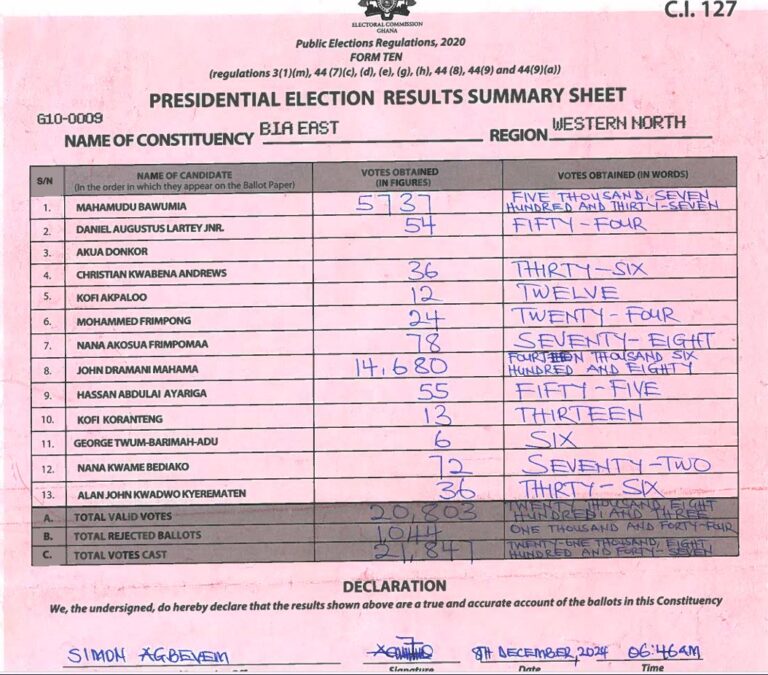 C.I. 127
ELECTORAL COMMISSION
GHANA
Public Elections Regulations, 2020
FORM TEN
(regulations 3(1)(m), 44 (7)(c), (d), (e), (g), (h), 44 (8), 44(9) and 44(9)(a))
PRESIDENTIAL ELECTION RESULTS SUMMARY SHEET
G10-0009
NAME OF CONSTITUENCY BIA EAST REGION WESTERN NORTH
S/N NAME OF CANDIDATE (In the order in which they appear on the Ballot Paper) VOTES OBTAINED (IN FIGURES) VOTES OBTAINED (IN WORDS)
1. MAHAMUDU BAWUMIA 5737 FIVE THOUSAND, SEVEN HUNDRED AND THIRTY-SEVEN
2. DANIEL AUGUSTUS LARTEY JNR. 54 FIFTY-FOUR
3. AKUA DONKOR
4. CHRISTIAN KWABENA ANDREWS 36 THIRTY-SIX
5. KOFI AKPALOO 12 TWELVE
6. MOHAMMED FRIMPONG 24 TWENTY-FOUR
7. NANA AKOSUA FRIMPOMAA 78 SEVENTY-EIGHT
8. JOHN DRAMANI MAHAMA 14,680 FOURTEEN THOUSAND SIX HUNDRED AND EIGHTY
9. HASSAN ABDULAI AYARIGA 55 FIFTY-FIVE
10. KOFI KORANTENG 13 THIRTEEN
11. GEORGE TWUM-BARIMAH-ADU 6 SIX
12. NANA KWAME BEDIAKO 72 SEVENTY-TWO
13. ALAN JOHN KWADWO KYEREMATEN 36 THIRTY-SIX
A. TOTAL VALID VOTES 20,803 TWENTY THOUSAND, EIGHT HUNDRED AND THREE
B. TOTAL REJECTED BALLOTS 1,044 ONE THOUSAND AND FORTY-FOUR
C. TOTAL VOTES CAST 21,847 TWENTY-ONE THOUSAND, EIGHT HUNDRED AND FORTY-SEVEN
DECLARATION
We, the undersigned, do hereby declare that the results shown above are a true and accurate account of the ballots in this Constituency
SIMON AGBEVEM 8TH DECEMBER, 2024 06:46AM
Signature Date Time